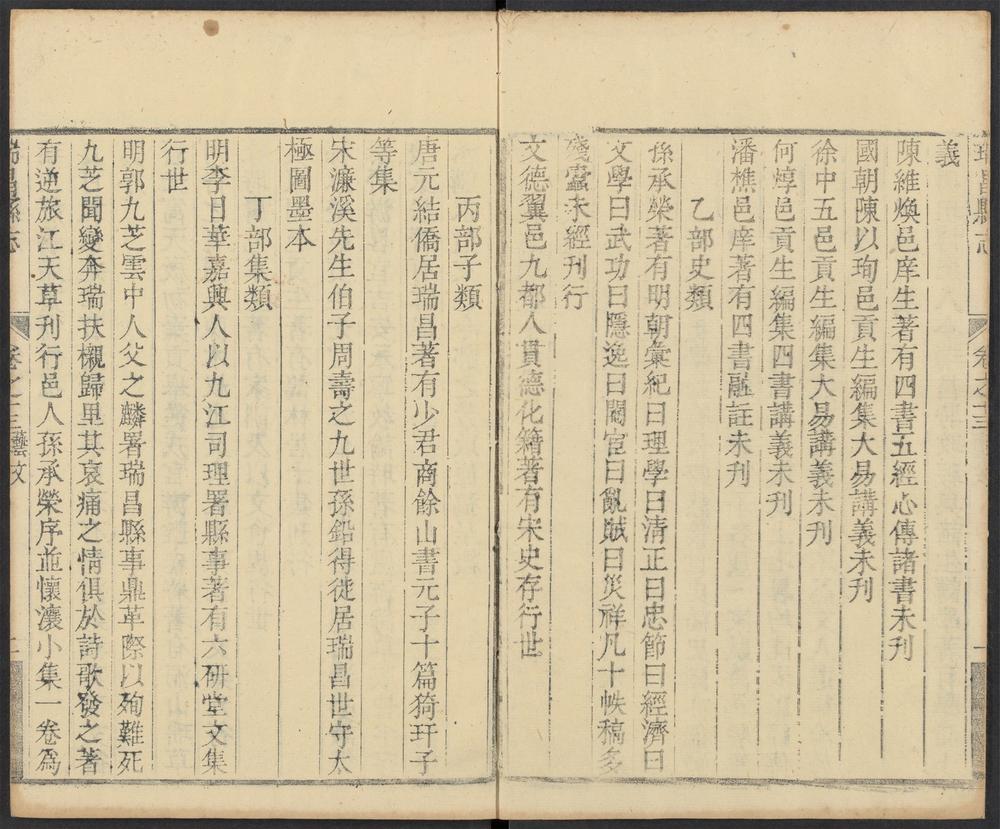 義
陳維煥邑庠生著有四書五經心傳諸書未刊
國朝陳以珣邑貢生編集大易講義未刊
徐中五邑貢生編集大易講義未刊
何焞邑貢生編集四書講義未刊
潘樵邑庠著有四書融註未刊
乙部史類
孫承榮著有明朝彙紀曰理學曰清正曰忠節曰經濟曰
文學曰武功曰隱逸曰閹宦曰亂賊曰災祥凡十帙稿多
殘蠹未經刊行
文德翼邑九都人貫德化籍著有宋史存行世
丙部子類
唐元結僑居瑞昌著有少君商餘山書元子十篇猗玗子
等集
宋濂溪先生伯子周壽之九世孫鉛得從居瑞昌世守太
極圖墨本
丁部集類
明李日華嘉興人以九江司理署縣事著有六研堂文集
行世
明郭九芝雲中人父之麟署瑞昌縣事鼎革際以殉難死
九芝聞變奔瑞扶櫬歸里其哀痛之情俱於詩歌發之著
有逆旅江天草刊行邑人孫承榮序並懷瀼小集一卷為
瑞昌縣志
卷之三
藝文
二